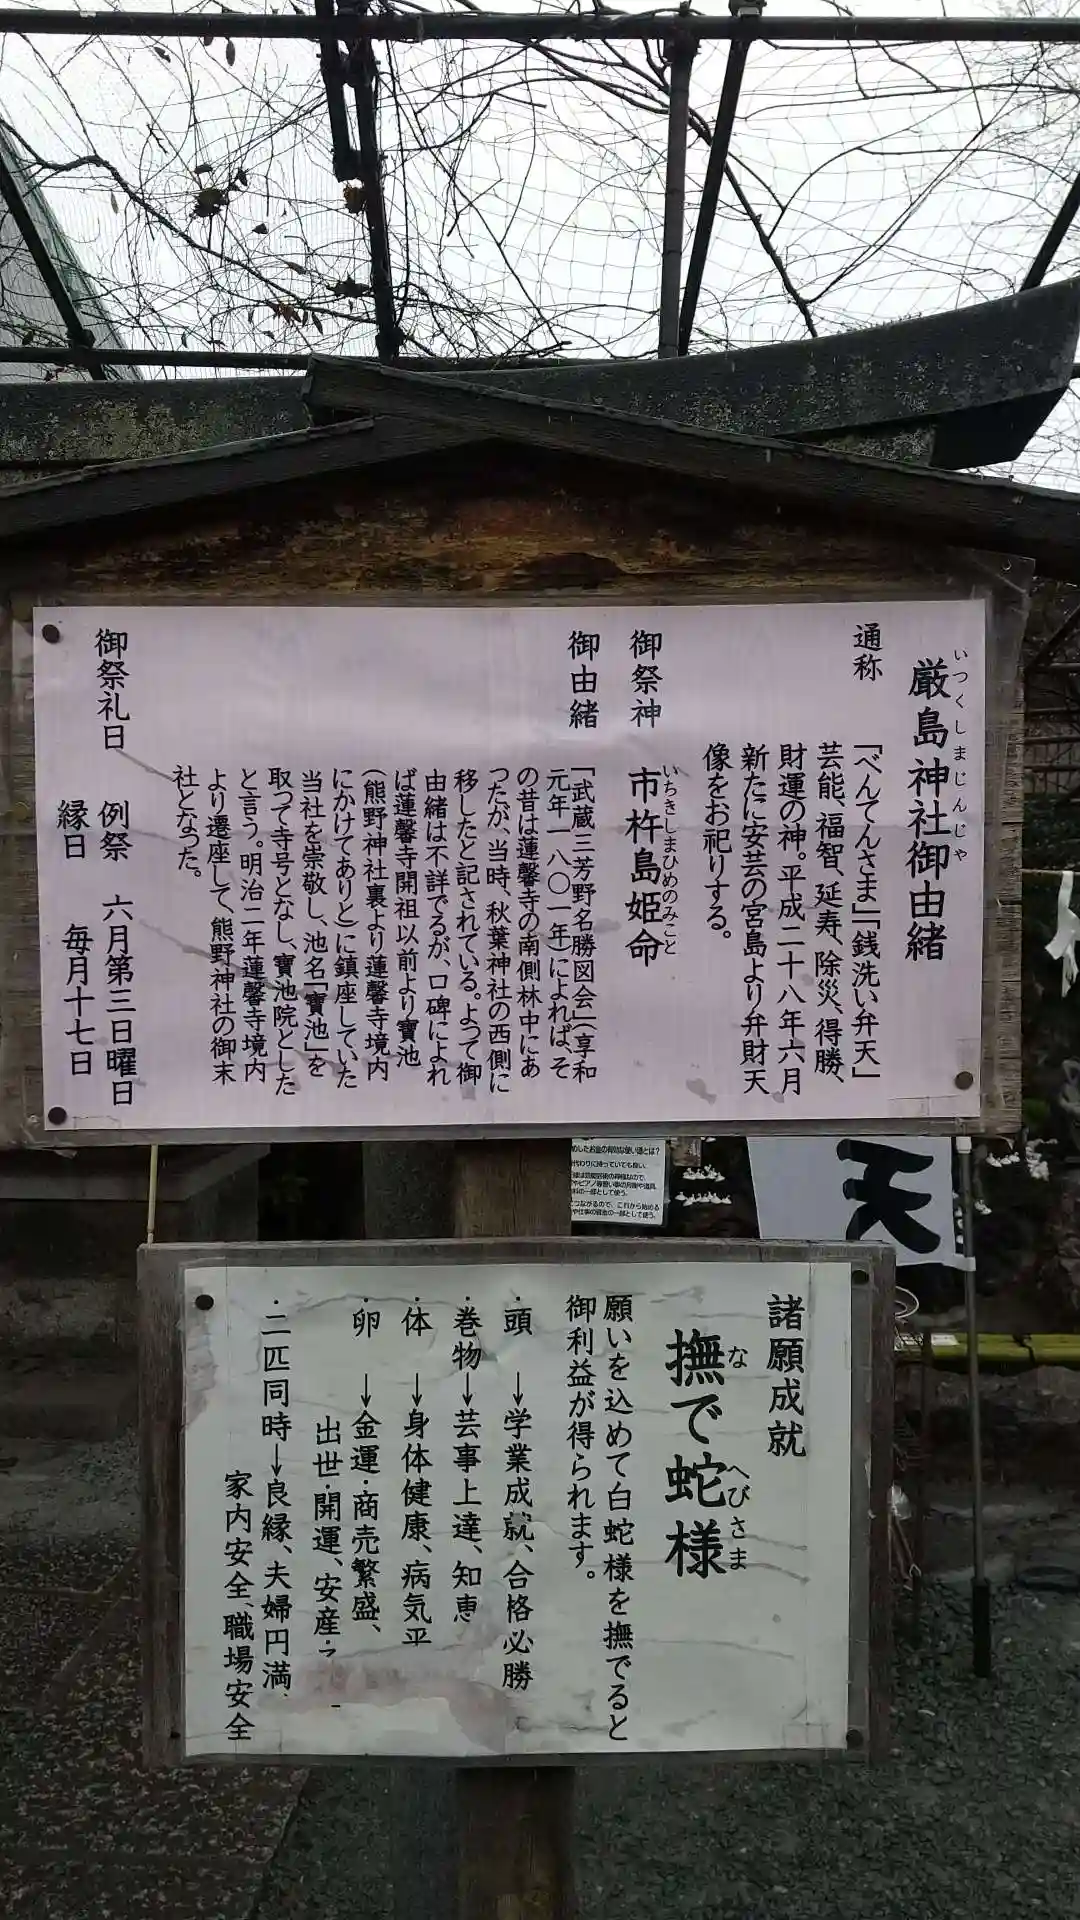 厳島神社御由緒
いつくしまじんじや
通称
「べんてんさま」「銭洗い弁天」
芸能、福智、延寿、除災、得勝、
財運の神。平成二十八年六月
新たに安芸の宮島より弁財天
像をお祀りする。
御祭神
市杵島姫命
いちきしまひめのみこと
御由緒
「武蔵三芳野名勝図会」(享和
元年一八〇一年)によれば、そ
の昔は蓮馨寺の南側林中にあ
つたが、当時、秋葉神社の西側に
移したと記されている。よって御
由緒は不詳でるが、口碑によれ
ば蓮馨寺開祖以前より寳池
(熊野神社裏より蓮馨寺境内
にかけてありと)に鎮座していた
当社を崇敬し、池名「寳池」を
取つて寺号となし、寳池院とした
と言う。明治二年蓮馨寺境内
より遷座して、熊野神社の御末
社となった。
御祭礼日
例祭 六月第三日曜日
縁日 毎月十七日
天
諸願成就
撫で蛇様
な へびさま
願いを込めて白蛇様を撫でると
御利益が得られます。
・頭 →学業成就、合格必勝
・巻物→芸事上達、知恵
・体 →身体健康、病気平
・卵 →金運・商売繁盛、
出世・開運、安産・
・二匹同時→良縁、夫婦円満
家内安全、職場安全